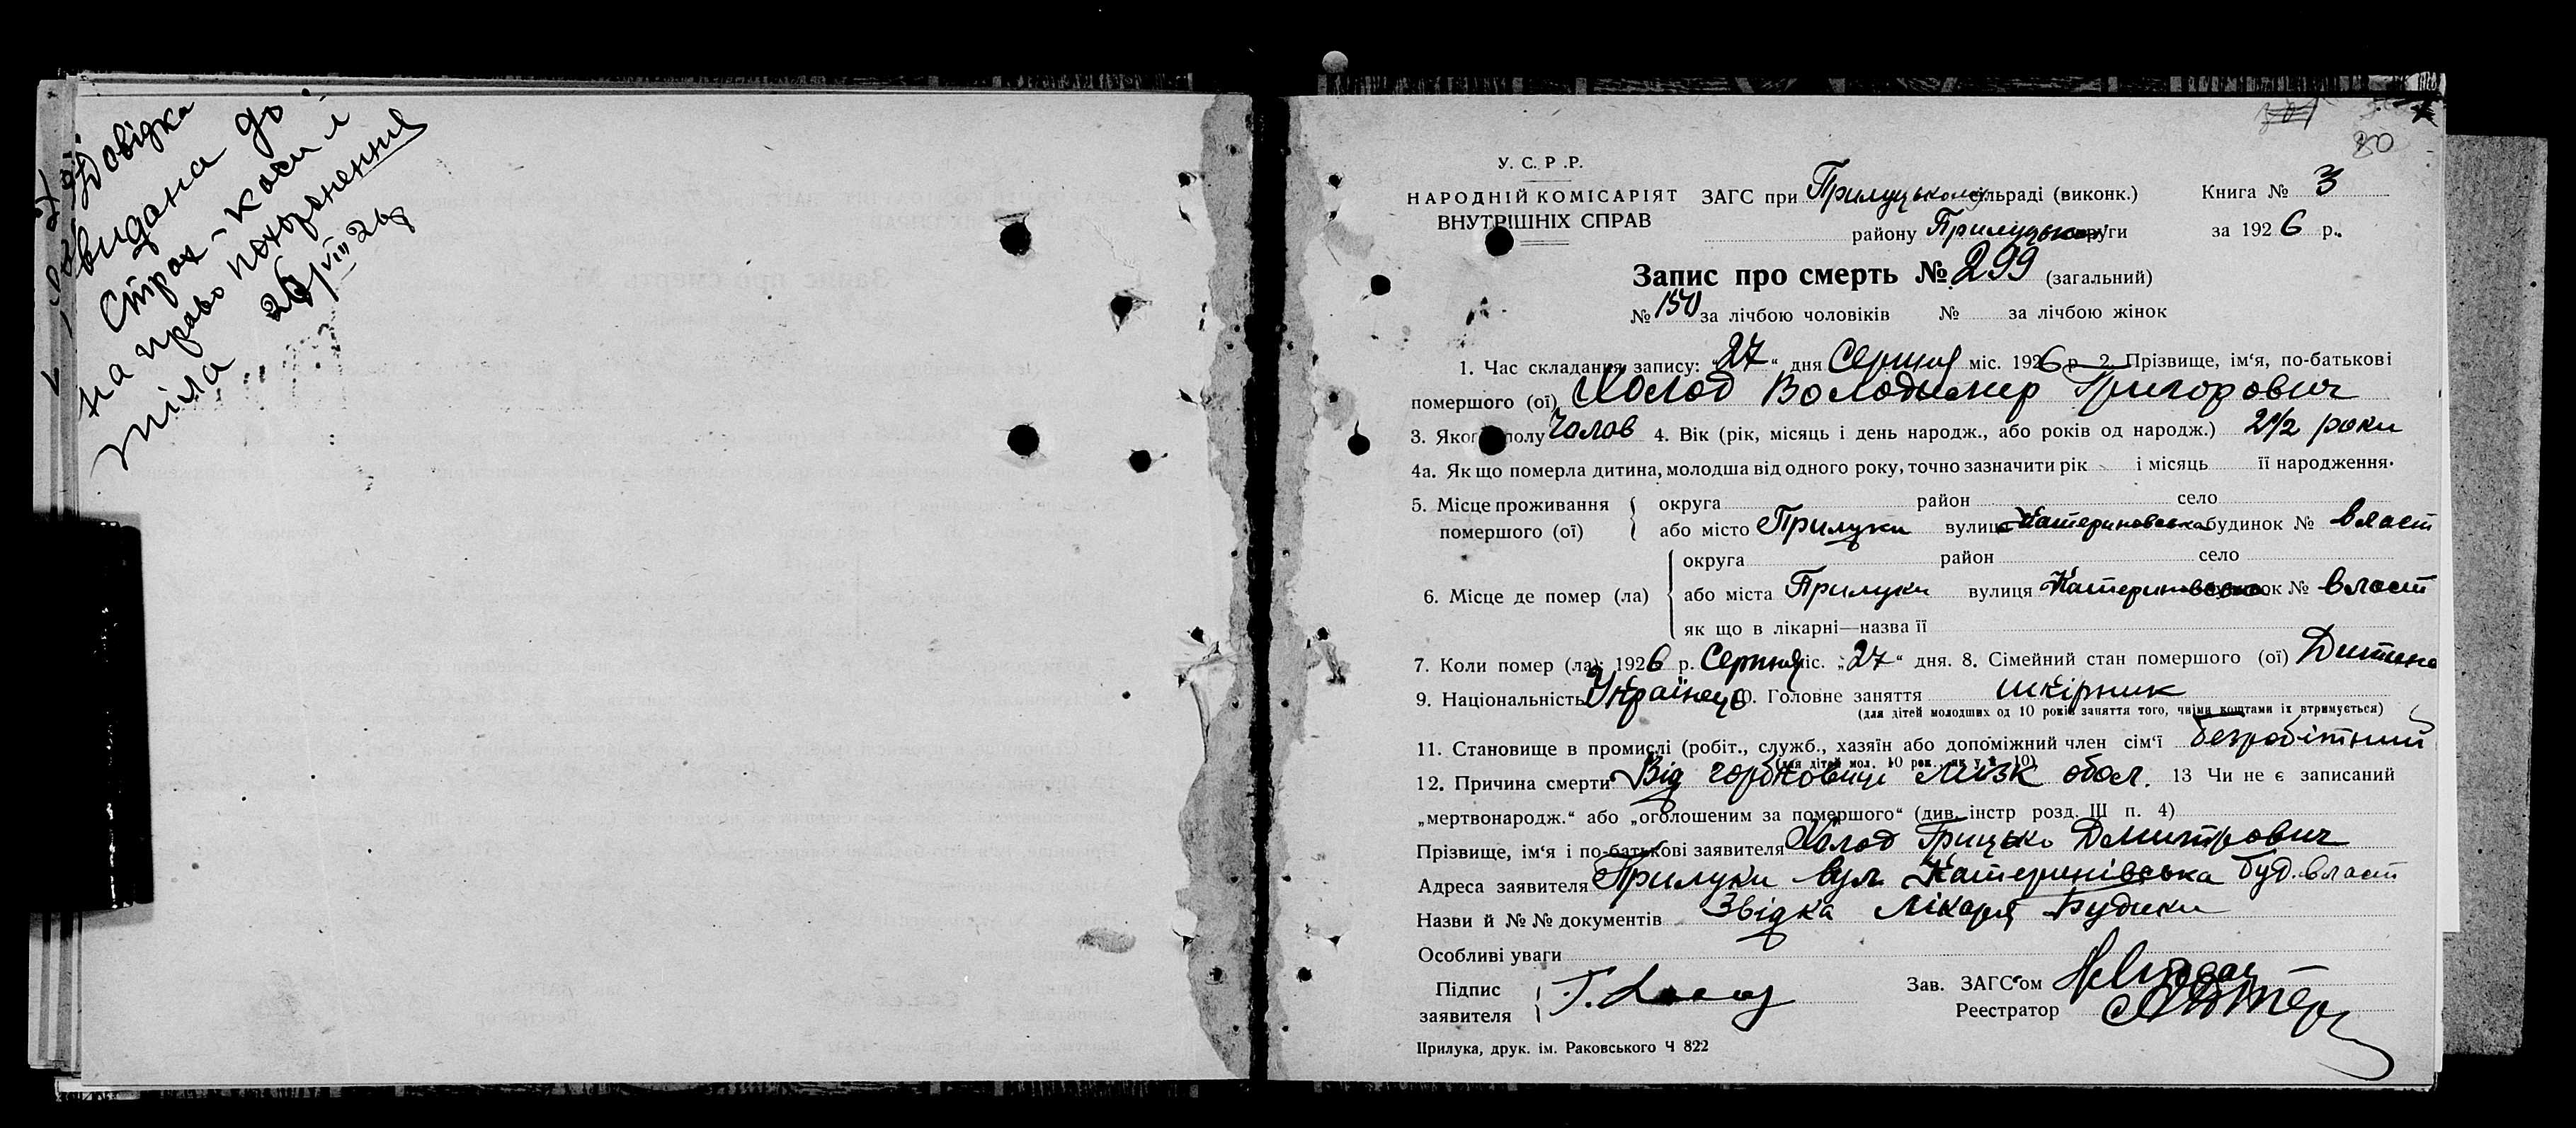 Довідка
видана до
Страх-каси
на право похоронення
тіла 28/VIII 26 р
80
У. С. Р. Р.
НАРОДНІЙ КОМІСАРІЯТ
ВНУТРІШНІХ СПРАВ
ЗАГС при Прилуцькому сльраді (виконк.) Книга № 3
району Прилуцької округи за 1926 р.
Запис про смерть № 299 (загальний)
№ 150 за лічбою чоловіків № за лічбою жінок
1. Час складання запису: „27“ дня Серпня міс. 1926 р 2. Прізвище, ім‘я, по-батькові
помершого (ої) Холод Володимир Григорович
3. Якого полу Чолов 4. Вік (рік, місяць і день народж., або років од народж.) 2 1/2 роки
4а. Як що померла дитина, молодша від одного року, точно зазначити рік і місяць її народження.
5. Місце проживання помершого (ої) округа район село
або місто Прилуки вулиця Катериновська будинок № власт
6. Місце де помер (ла) округа район село
або міста Прилуки вулиця Катериновська будинок № власт
як що в лікарні—назва її
7. Коли помер (ла): 1926 р. Серпня міс. „27“ дня. 8. Сімейний стан помершого (ої) Дитина
9. Національність Українець 10. Головне заняття шкірник
(для дітей молодших од 10 років заняття того, чиїми коштами їх втримується)
11. Становище в промислі (робіт., служб., хазяїн або допоміжний член сім‘ї безробітний
(для дітей мол. 10 рок. як у п. 10)
12. Причина смерти Від горбковиці мізк обол. 13 Чи не є записаний
„мертвонародж.“ або „оголошеним за помершого“ (див. інстр розд. Ш п. 4)
Прізвище, ім‘я і по-батькові заявителя Холод Грицько Дмитрович
Адреса заявителя Прилуки вул. Катеринівська буд. власт
Назви й №№ документів Звідка лікаря Будики
Особливі уваги
Підпис заявителя Г. Холод
Зав. ЗАГС‘ом
Реестратор
Прилука, друк. ім. Раковського Ч 822